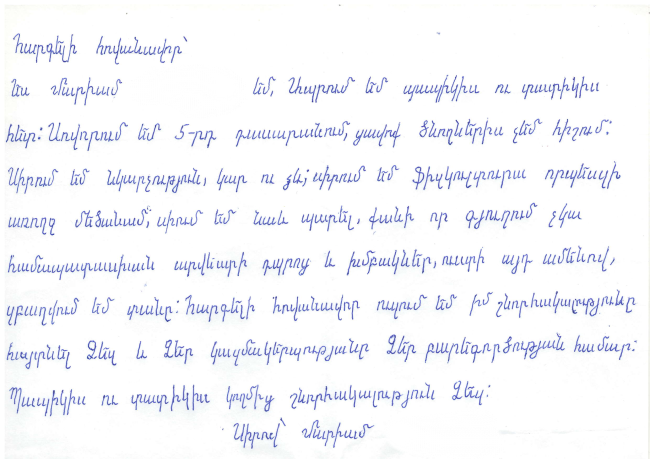 Հարգելի հովանավոր՝
Ես Մարիամ եմ, Ապրում եմ պապիկիս ու տատիկիս
հետ: Սովորում եմ 5-րդ դասարանում, ցավոք ծնողներիս չեմ հիշում:
Սիրում եմ նկարչություն, կար ու ձև, սիրում եմ ֆիզկուլտուրա որպեսզի
առողջ մեծանամ, սիրում եմ նաև պարել, քանի որ գյուղում չկա
համապատասխան արվեստի դպրոց և խմբակներ, ուստի այդ ամենով,
զբաղվում եմ տանը: Հարգելի հովանավոր ուզում եմ իմ շնորհակալությունը
հայտնել Ձեզ և Ձեր կազմակերպությանը Ձեր բարեգործության համար:
Պապիկիս ու տատիկիս կողմից շնորհակալություն Ձեզ:
Սիրով՝ Մարիամ